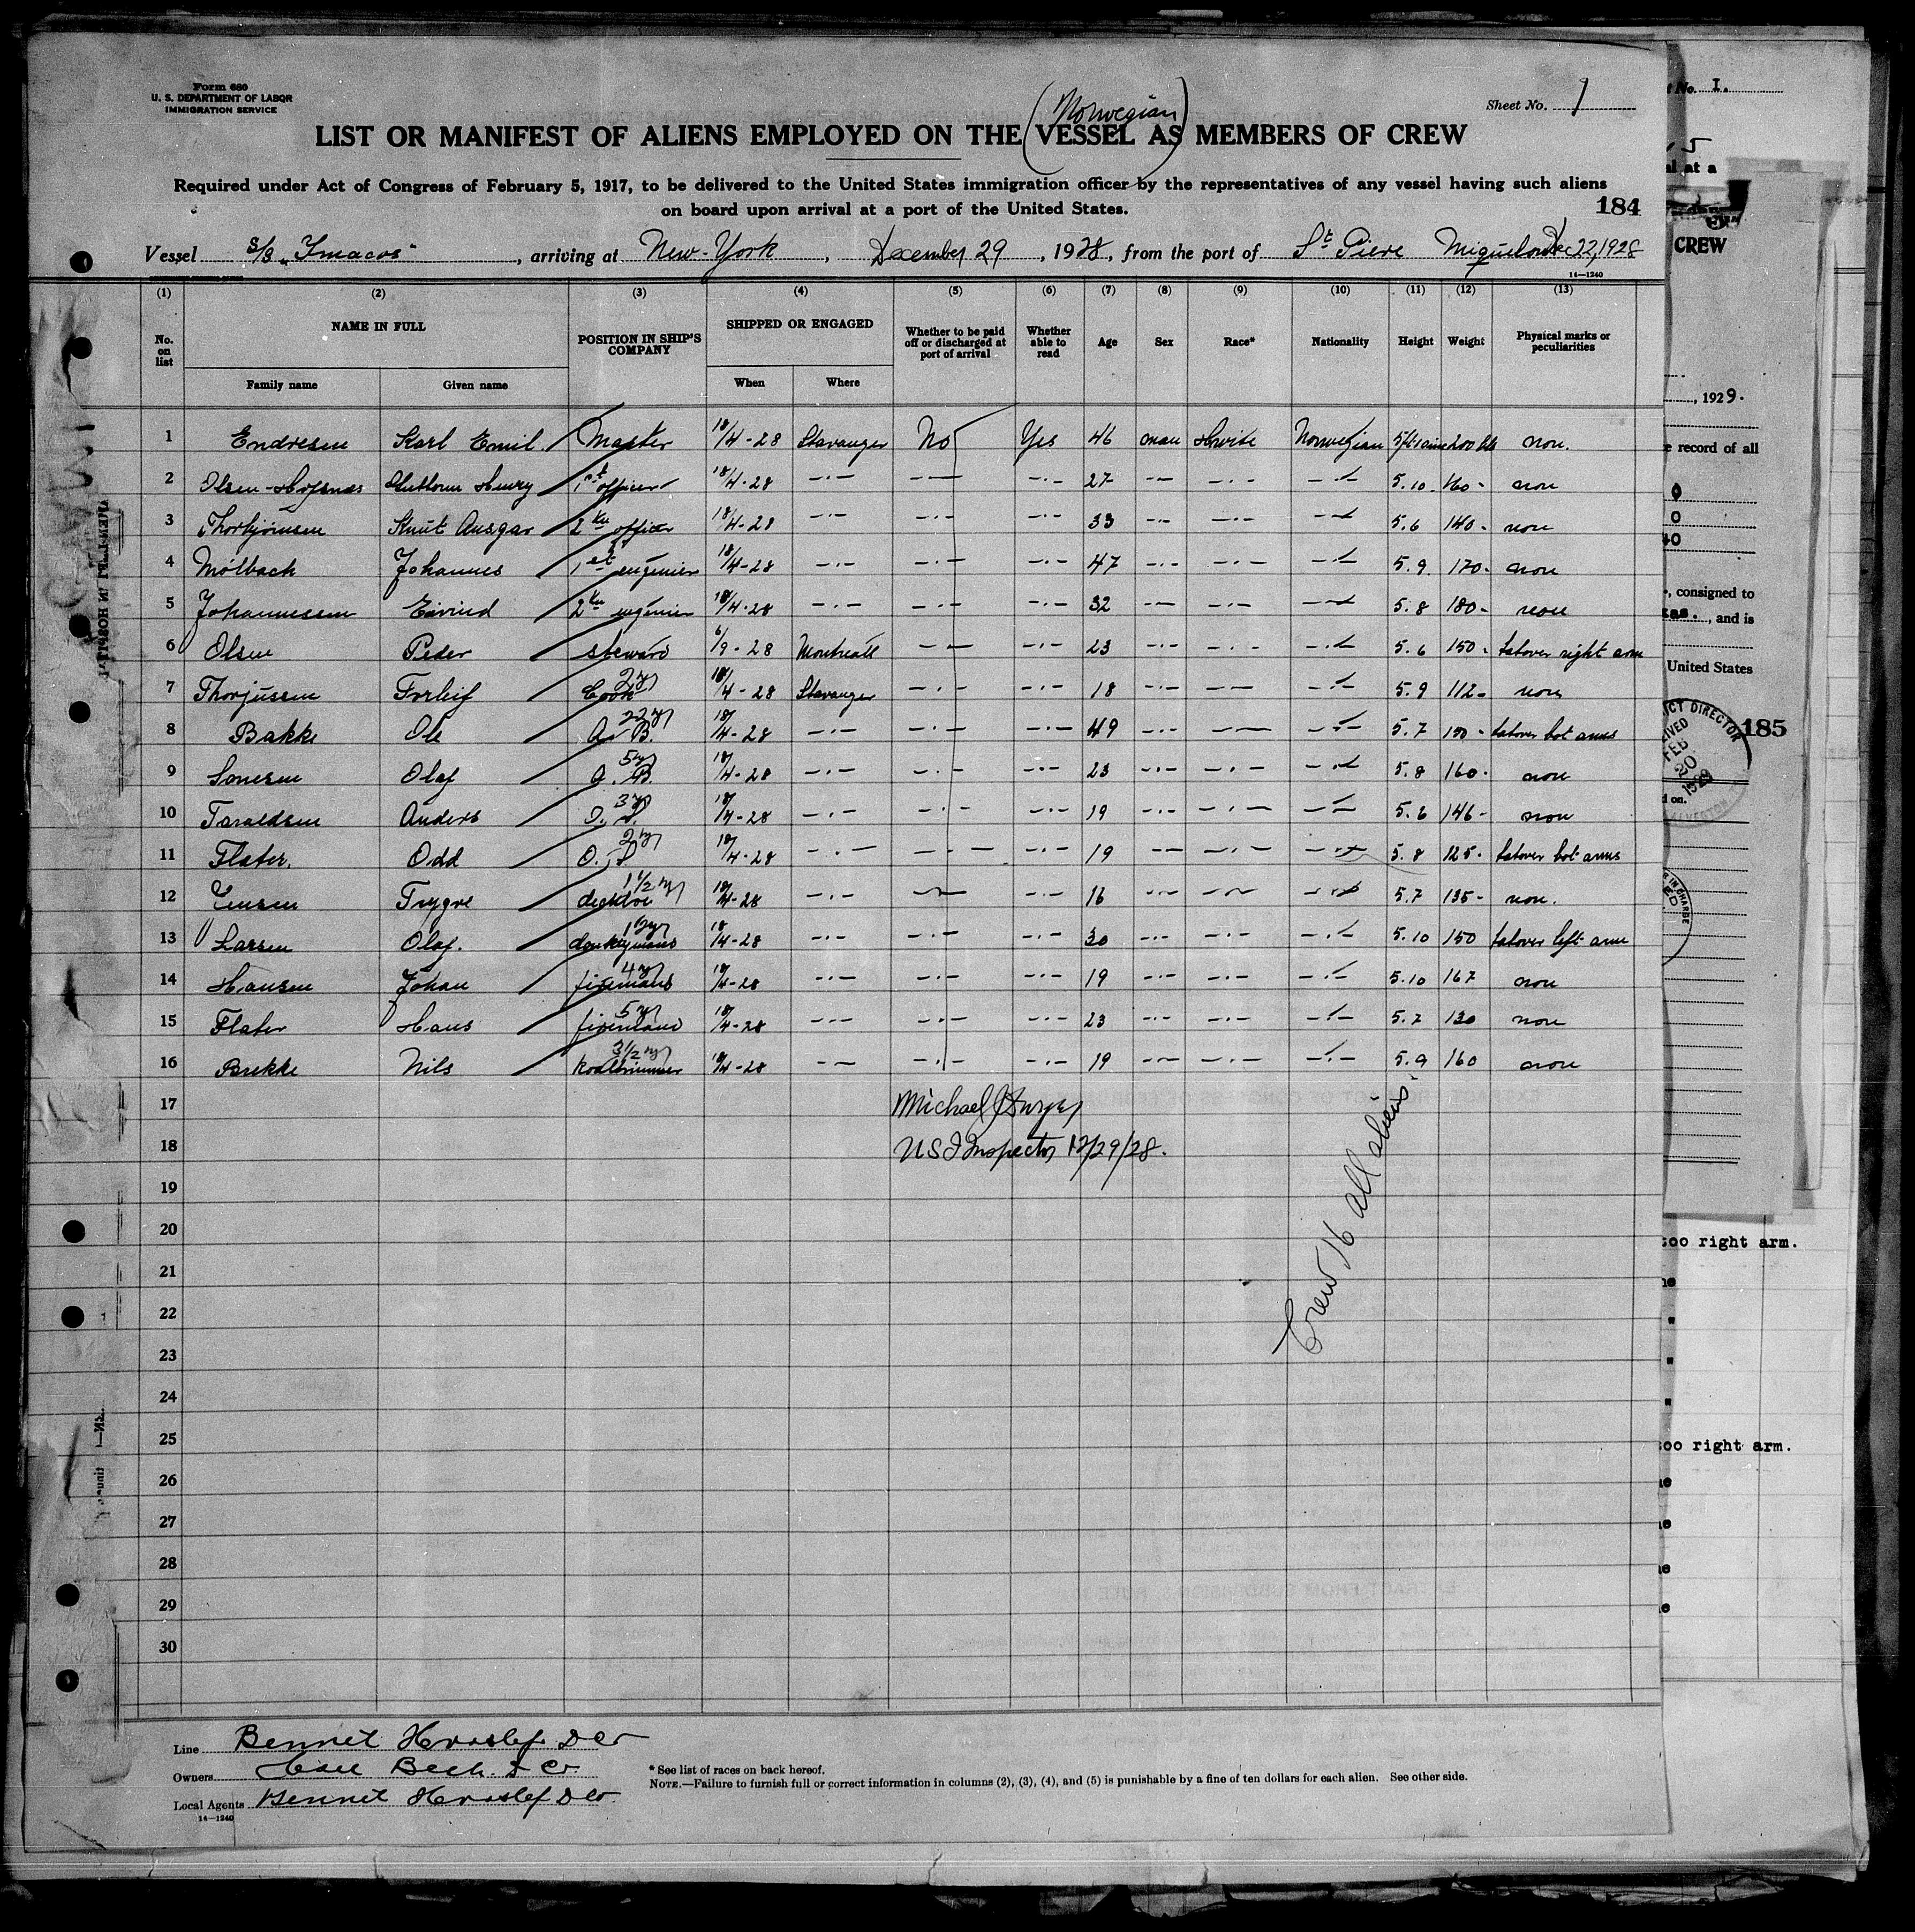 Form 680
U. S. DEPARTMENT OF LABOR
IMMIGRATION SERVICE
Sheet No. 1
(Norwegian)
LIST OR MANIFEST OF ALIENS EMPLOYED ON THE VESSEL AS MEMBERS OF CREW
Required under Act of Congress of February 5, 1917, to be delivered to the United States immigration officer by the representatives of any vessel having such aliens
on board upon arrival at a port of the United States.
184
Vessel S/S "Imacos", arriving at New-York, December 29, 1928, from the port of St Piere Miquelon Dec 22, 1928
14—1240
(1) (2) (3) (4) (5) (6) (7) (8) (9) (10) (11) (12) (13)
No. on list NAME IN FULL POSITION IN SHIP'S COMPANY SHIPPED OR ENGAGED Whether to be paid off or discharged at port of arrival Whether able to read Age Sex Race* Nationality Height Weight Physical marks or peculiarities
Family name Given name When Where
1 Endresen Karl Emil Master 18/4-28 Stavanger No Yes 46 man Norwegian 200 lbs non.
2 Olsen- Henry 1st officer 18/4-28 -·- -·- -·- 27 -·- -·- -·- 5.10 160- non
3 Thorbjørnsen Knut Ansgar 2 officer 18/4-28 -·- -·- -·- 33 -·- -·- -·- 5.6 140- non
4 Mölback Johannes 1st engenier 18/4-28 -·- -·- -·- 47 -·- -·- -·- 5.9. 170- non
5 Johannessen Eivind 2 engenier 18/4-28 -·- -·- -·- 32 -·- -·- -·- 5.8 180- non
6 Olsen Peder steward 6/9-28 Montreall -·- -·- 23 -·- -·- -·- 5.6 150- tatover right arm
7 Thorjussen Torleif Cook 2y 18/4-28 Stavanger -·- -·- 18 -·- -·- -·- 5.9 112- non
8 Bakke Ole A.B. 22y 18/4-28 -·- -·- -·- 49 -·- -·- -·- 5.7 tatover bot arms
9 Olaf A.B. 5y 18/4-28 -·- -·- -·- 23 -·- -·- -·- 5.8 160- non
10 Taraldsen Anders O.S. 3y 18/4-28 -·- -·- -·- 19 -·- -·- -·- 5.6 146- non
11 Flater. Odd O.S. 2y 18/4-28 -·- -·- -·- 19 -·- -·- -·- 5.8 125- tatover bot arms
12 Trygve 1 1/2 y 18/4-28 -·- -·- -·- 16 -·- -·- -·- 5.7 135- non.
13 Larsen Olaf. donkeymand 18/4-28 -·- -·- -·- 30 -·- -·- -·- 5.10 150 tatover left arm
14 Hansen Johan firemand 4y 18/4-28 -·- -·- -·- 19 -·- -·- -·- 5.10 167 non
15 Flater Hans firemand 5y 18/4-28 -·- -·- -·- 23 -·- -·- -·- 5.7 130 non
16 Brekke Nils 3 1/2 y 18/4-28 -·- -·- -·- 19 -·- -·- -·- 5.9 160 non
17 Michael J
18 U S I Inspector 12/29/28.
19
20
21
22
23
24
25
26
27
28
29
30
Crew 16 all aliens.
Line Bennet Hvoslef & Co
Owners & Co
Local Agents Bennet Hvoslef & Co.
14—1240
* See list of races on back hereof.
NOTE.—Failure to furnish full or correct information in columns (2), (3), (4), and (5) is punishable by a fine of ten dollars for each alien. See other side.
No. I.
al at a
CREW
, 1929.
record of all
0
0
40
, consigned to
, and is
United States
185
DIRECTOR
FEB
20
1929
d on.
IN CHARGE
too right arm.
too right arm.